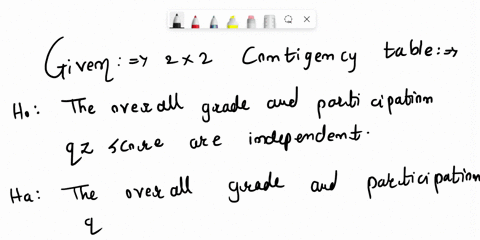 Given: => 2x2 Contigency table:=>
Ho: The overall grade and participation
qz score are independent.
Ha: The overall grade and participation
q